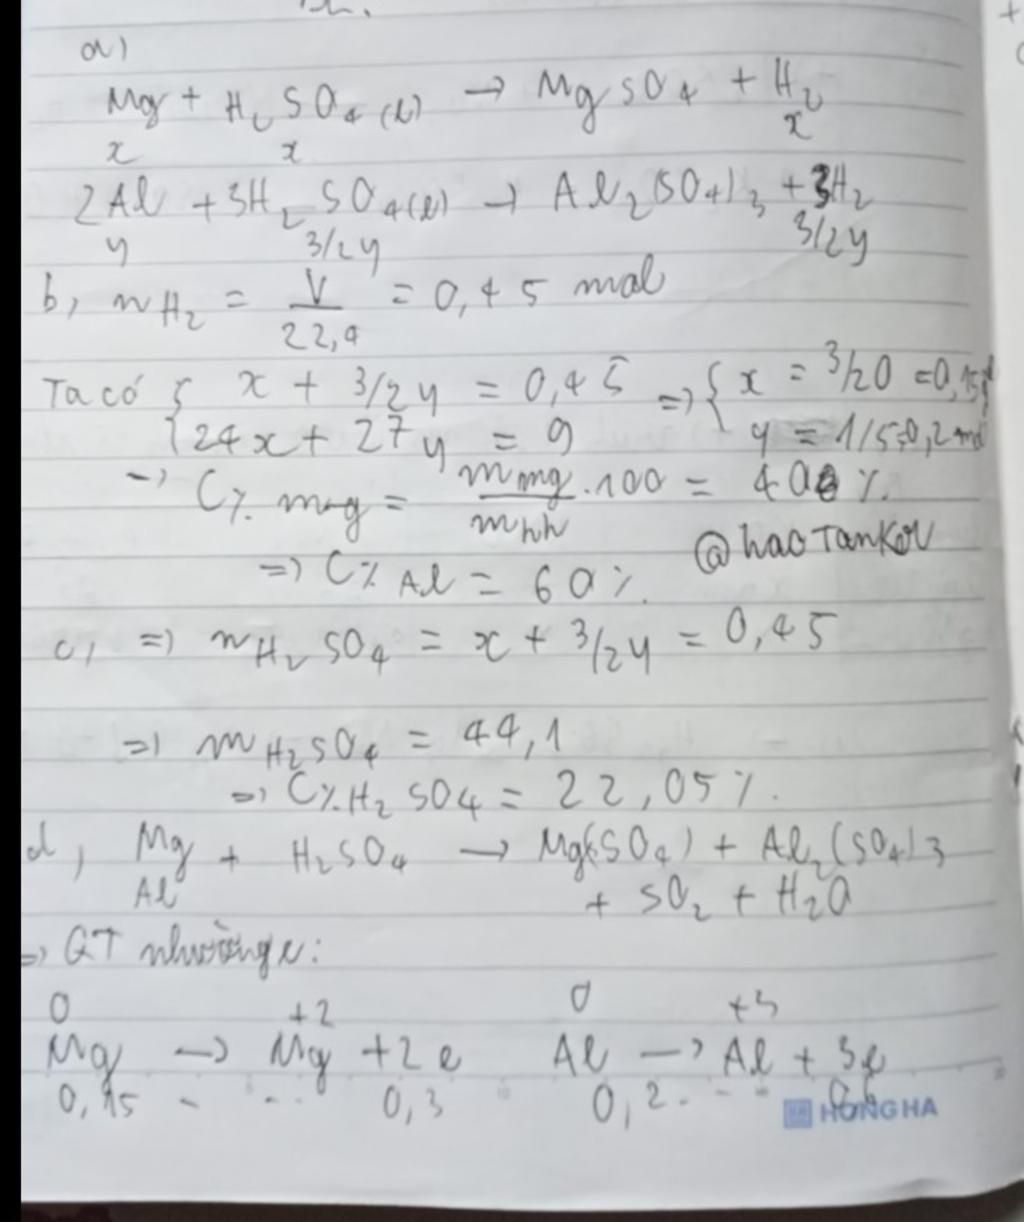 a)
Mg + H₂SO₄(l) → MgSO₄ + H₂
x x x
2Al + 3H₂SO₄(l) → Al₂(SO₄)₃ + 3H₂
y 3/2y 3/2y
b, nH₂ = V/22,4 = 0,45 mol
Ta có { x + 3/2y = 0,45 => { x = 3/20 = 0,15
{ 24x + 27y = 9 y = 1/5=0,2 mol
→ C% mg = m mg/m hh .100 = 40 %.
@haoTanker
=> C% Al = 60%.
c, => nH₂SO₄ = x + 3/2y = 0,45
=> mH₂SO₄ = 44,1
=> C%H₂SO₄ = 22,05%.
d, Mg + H₂SO₄ → Mg(SO₄) + Al₂(SO₄)3
Al + SO₂ + H₂O
=> QT nhường e:
0 +2 0 +3
Mg → Mg + 2e Al → Al + 3e
0,15 - .. 0,3 0,2. - - 0,6
HONG HA